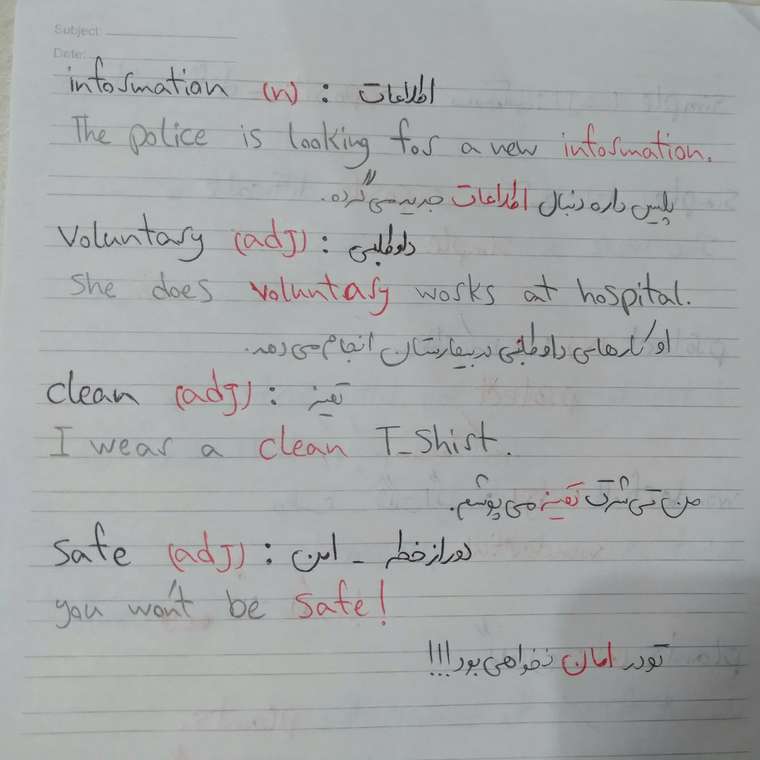 Subject:
Date:
information (n) : اطلاعات
The police is looking for a new information.
پلیس داره دنبال اطلاعات جدید می‌گرده.
Voluntary (adj) : داوطلبی
She does voluntary works at hospital.
او کارهایی داوطلبی در بیمارستان انجام می‌دهد.
clean (adj) : تمیز
I wear a clean T_Shirt.
من تی‌شرت تمیز می‌پوشم.
Safe (adj) : امن _ دور از خطر
you won't be safe!
تو در امان نخواهی بود!!!